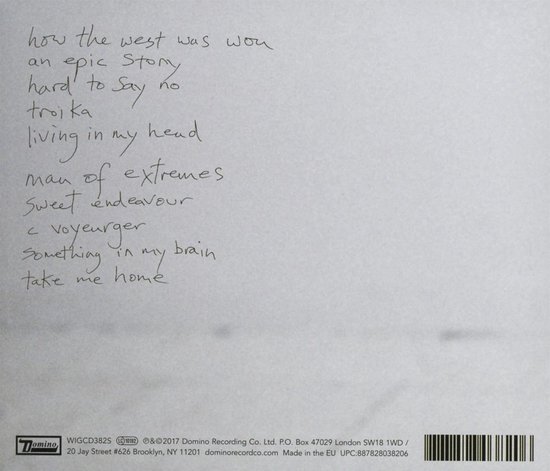 how the west was won
an epic story
hard to say no
troika
living in my head
man of extremes
sweet endeavour
c voyeurger
something in my brain
take me home
Domino WIGCD382S LC 10192 ℗&©2017 Domino Recording Co. Ltd. P.O. Box 47029 London SW18 1WD /
20 Jay Street #626 Brooklyn, NY 11201 dominorecordco.com Made in the EU UPC:887828038206